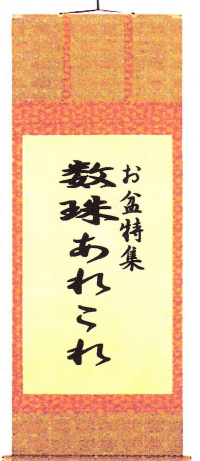 お盆特集
数珠あれこれ